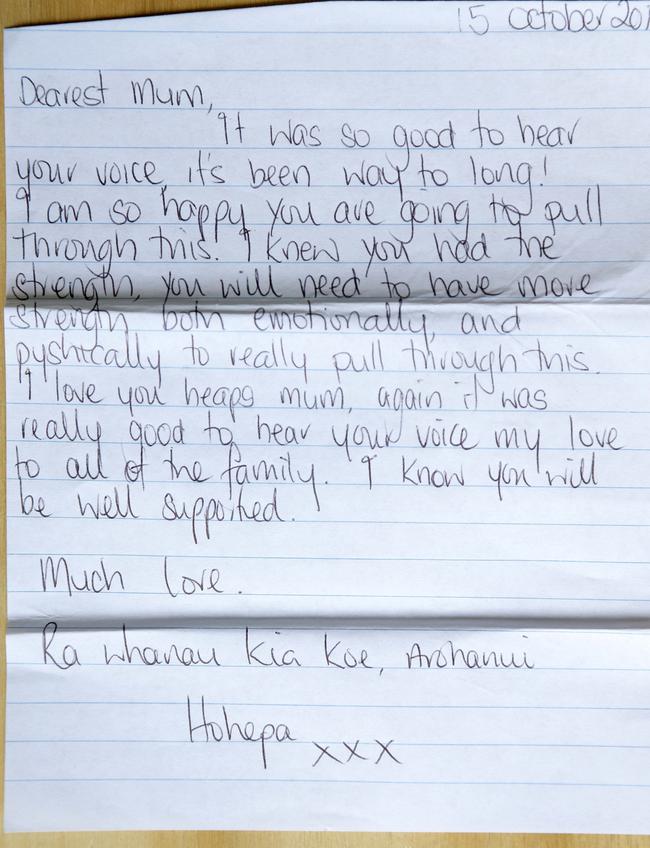 15 October 201
Dearest Mum,
It was so good to hear
your voice, it's been way to long!
I am so happy you are going to pull
through this! I knew you had the
strength, you will need to have more
strength both emotionally, and
pyshically to really pull through this.
I love you heaps mum, again it was
really good to hear your voice my love
to all of the family. I know you will
be well supported.
Much love.
Ra whanau kia koe, Arohanui
Hohepa xxx